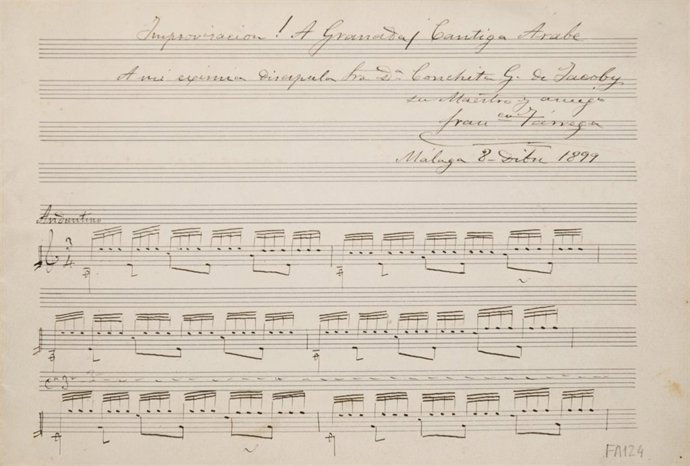 Improvisacion! A Granada / Cantiga Arabe
A mi eximia discipula Sra Dª Conchita G. de Jacoby
su Maestro y amigo
Fran co Tárrega
Málaga 8 Dibre 1899
Andantino
3
4
FA124